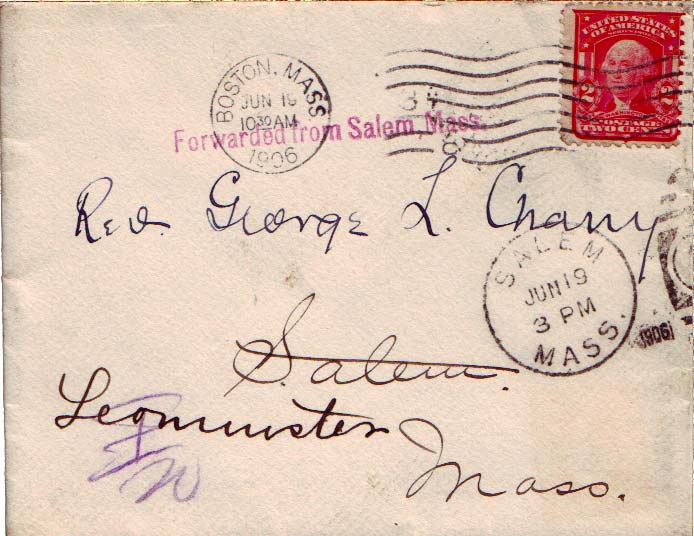 UNITED STATES
OF AMERICA
2 2
POSTAGE
TWO CENTS
BOSTON, MASS
JUN 19
10 30 AM
1906
Forwarded from Salem, Mass.
Rev. George L. Chaney
SALEM
JUN 19
3 PM
MASS.
1906
Salem.
Leominster
Mass.